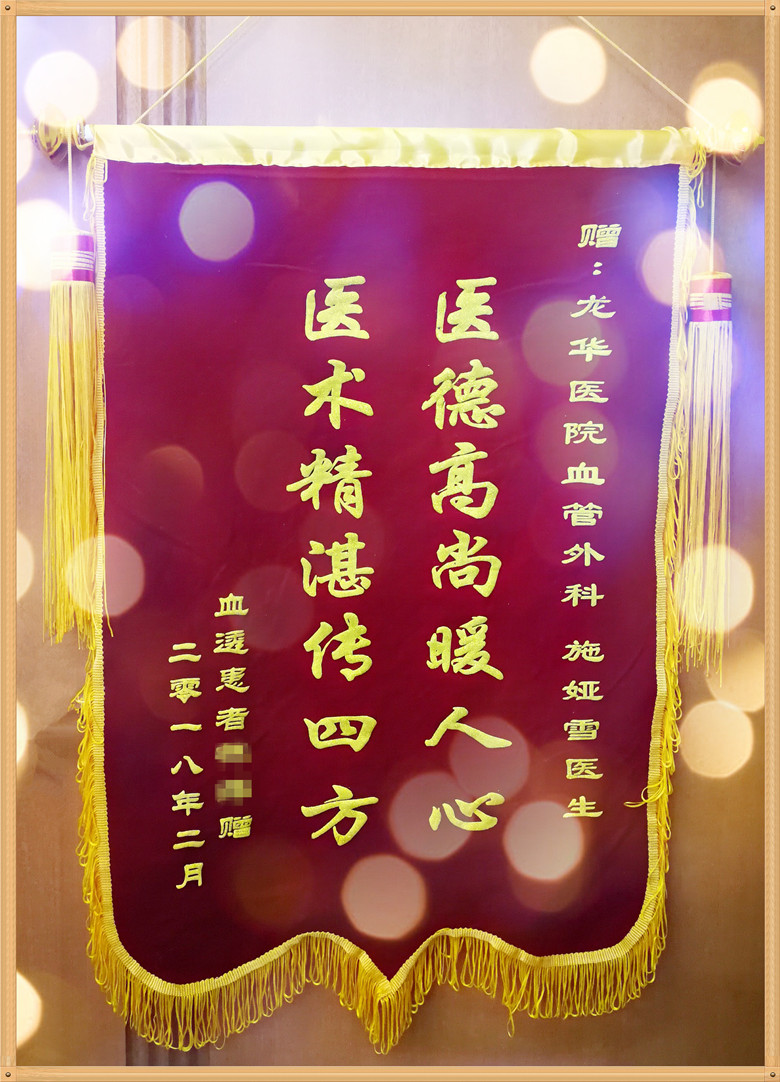 赠：龙华医院血管外科 施娅雪医生
医德高尚暖人心
医术精湛传四方
血透患者 赠
二零一八年二月